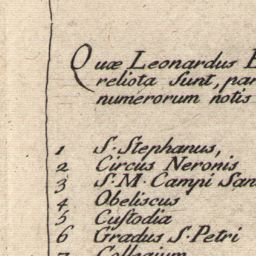 Quæ Leonardus B
reliota sunt, par
numerorum notis
1 S. Stephanus,
2 Circus Neronis
3 S. M. Campi San
4 Obeliscus
5 Custodia
6 Gradus S. Petri
7 Collegium